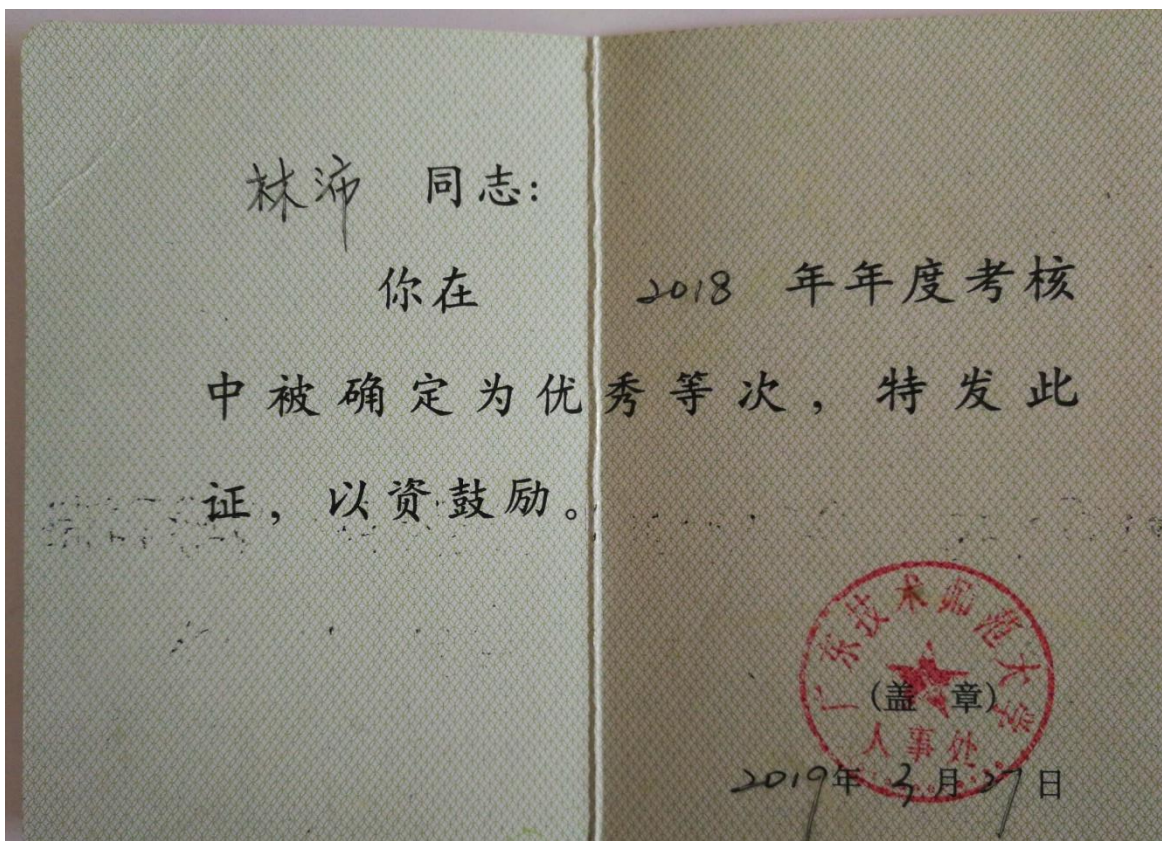 林沛 同志:
你在 2018 年年度考核
中被确定为优秀等次，特发此
证，以资鼓励。
广东技术师范大学
(盖 章)
人事处
2019年3月27日